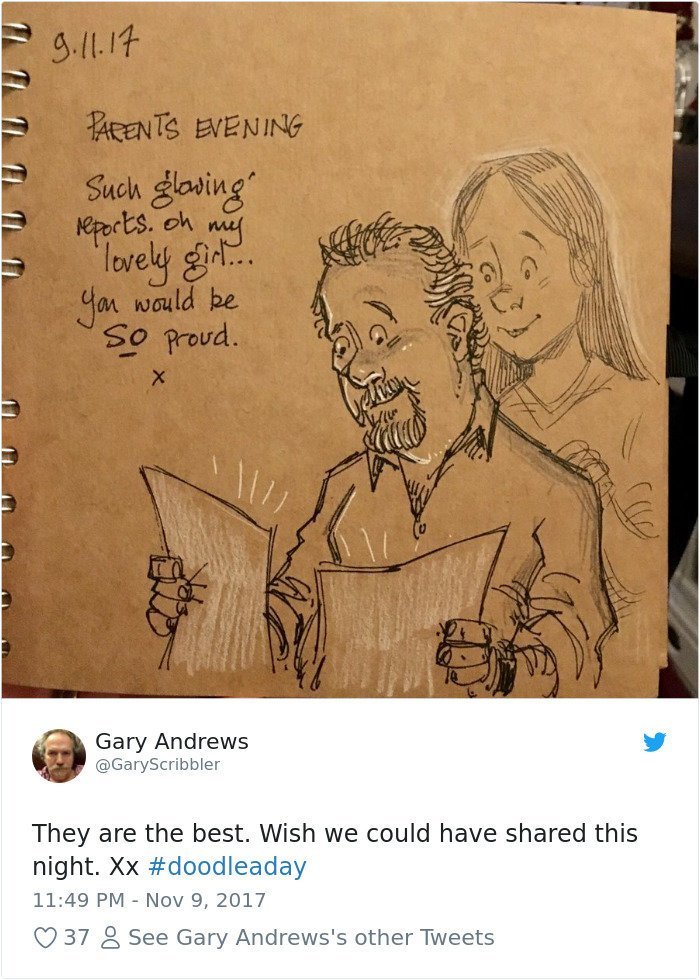 9.11.17
PARENTS EVENING
Such glowing
reports. oh my
lovely girl...
you would be
SO proud.
x
Gary Andrews
@GaryScribbler
They are the best. Wish we could have shared this
night. Xx #doodleaday
11:49 PM - Nov 9, 2017
37 See Gary Andrews's other Tweets